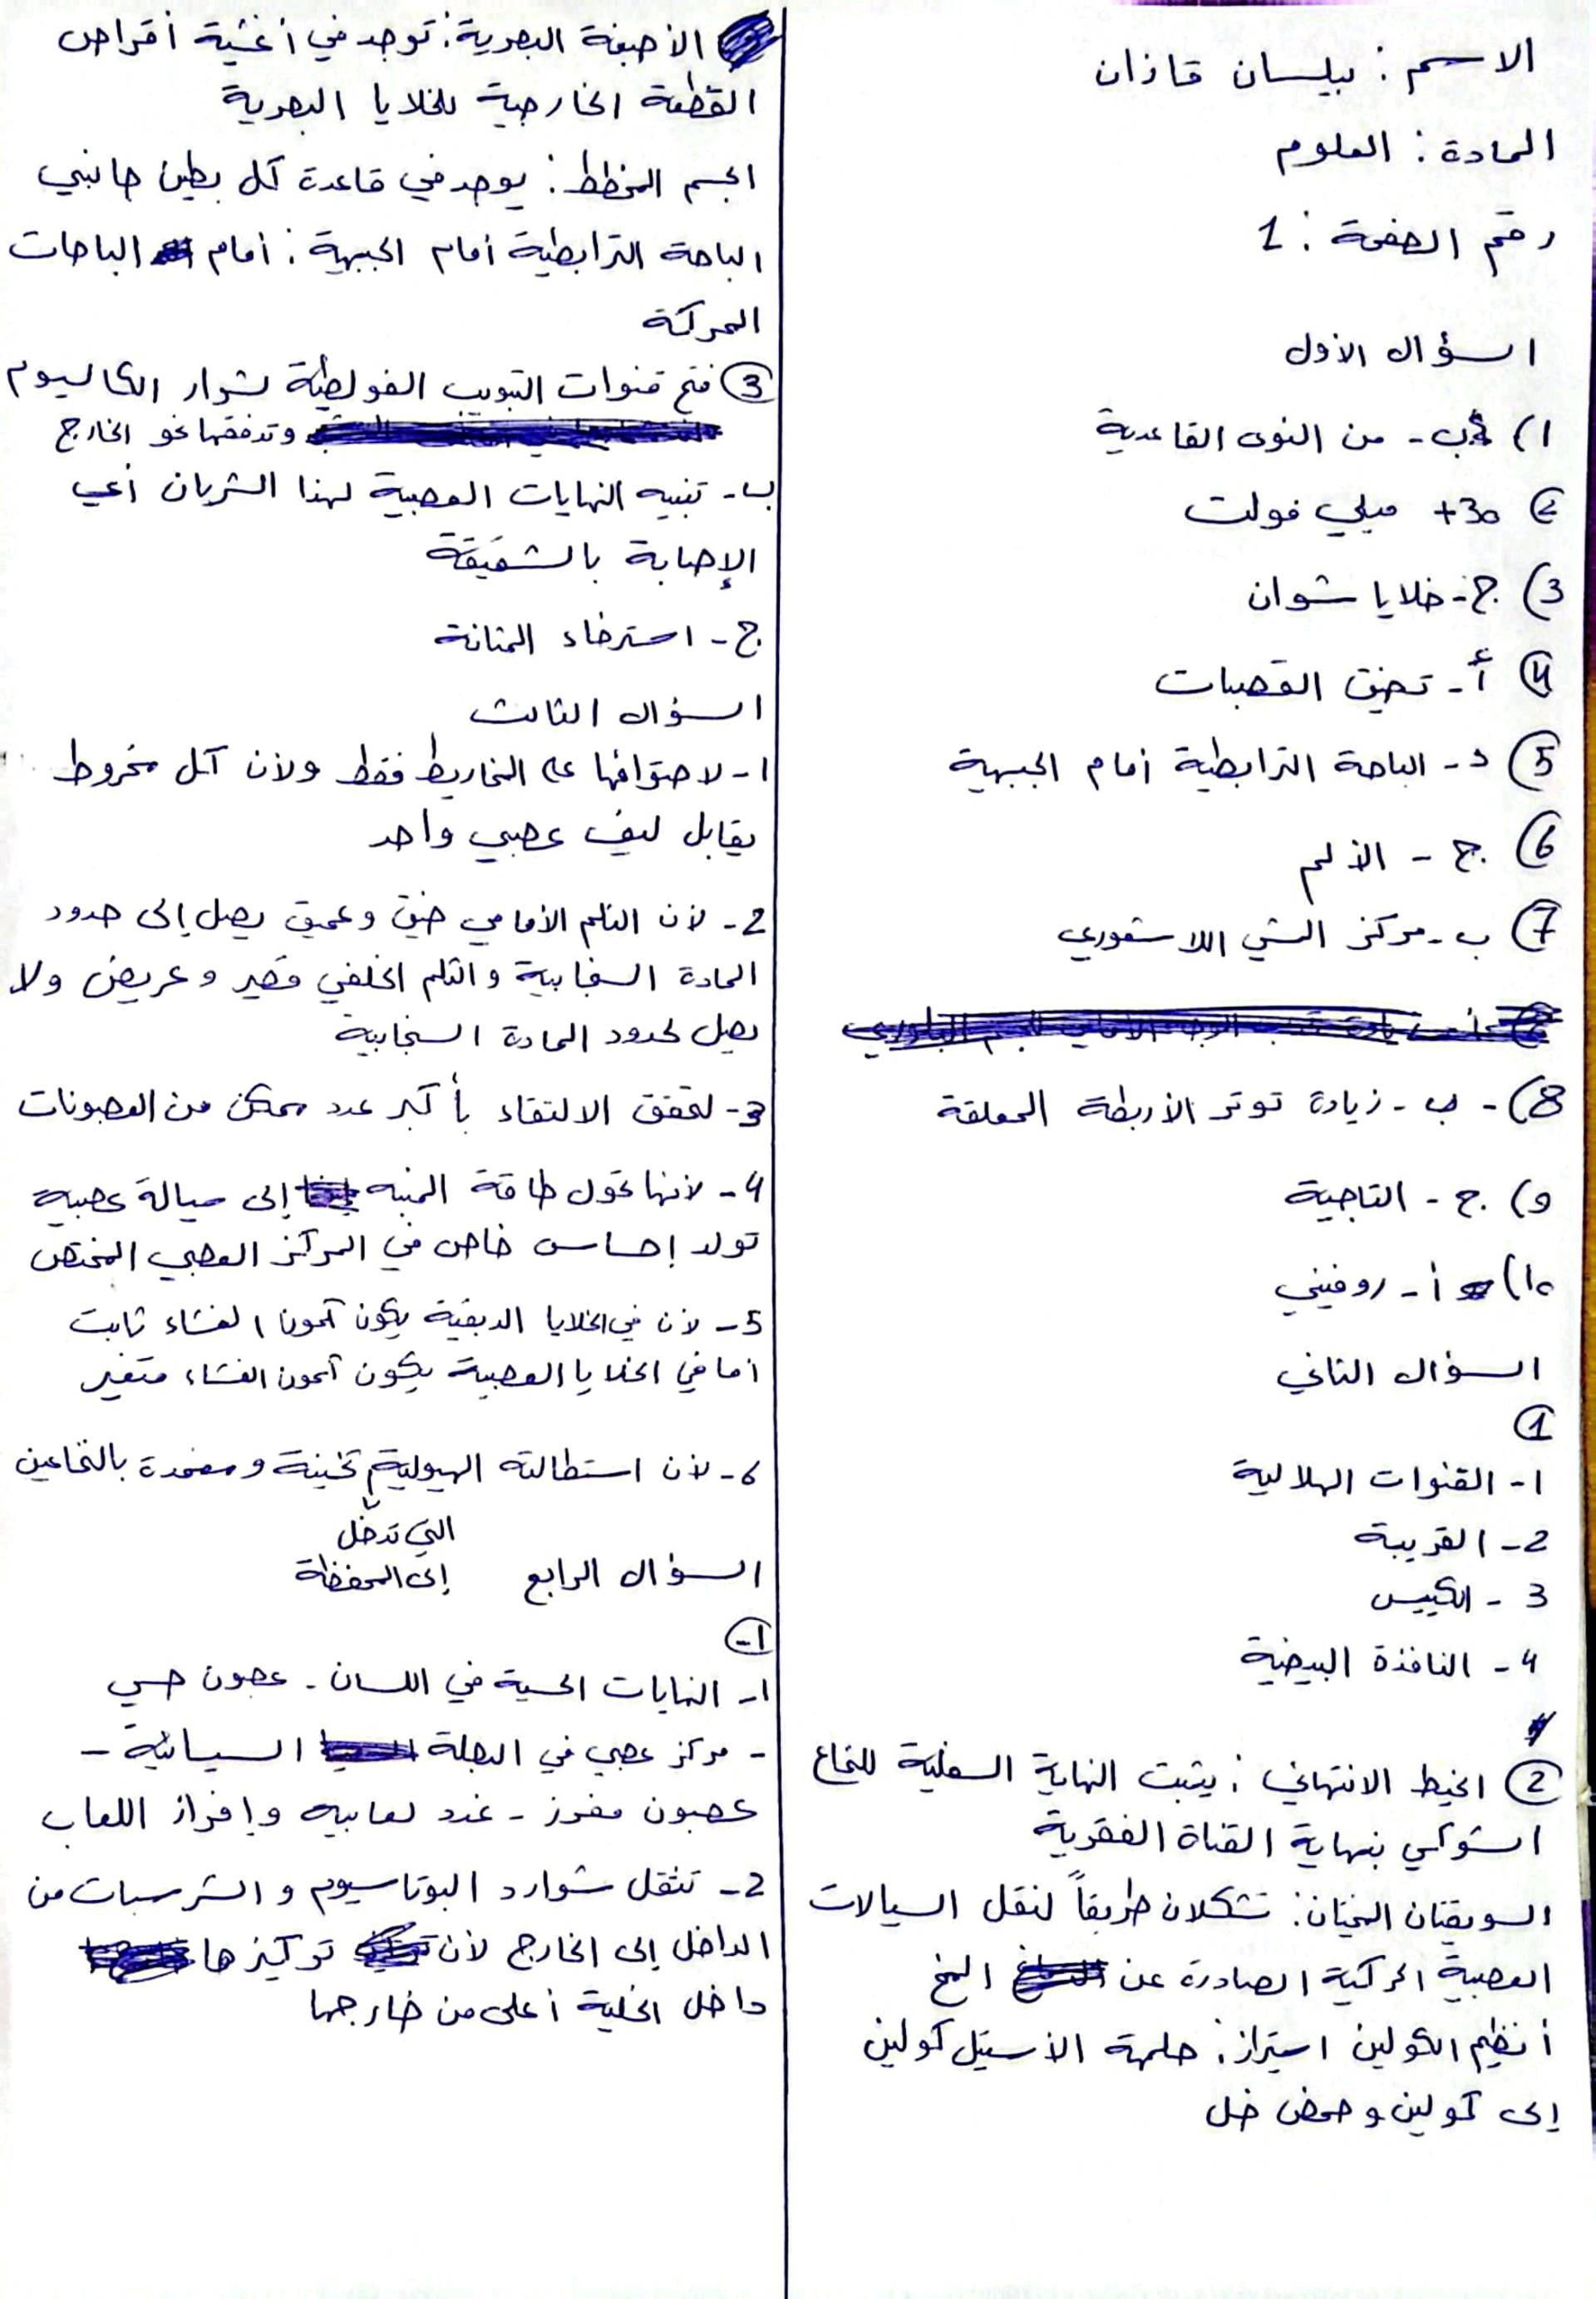 الاسم : بيلسان قازان
المادة : العلوم
رقم الصفحة : 1
السؤال الأول
1) ب - من النوى القاعدية
2) +30 ميلي فولت
3) ج - خلايا شوان
4) أ - تضيق القصبات
5) د - الباحة الترابطية أمام الجبهية
6) ج - الألم
7) ب - مركز المشي اللاشعوري
8) - ب - زيادة توتر الأربطة المعلقة
9) ج - التاجية
10) أ - روفيني
السؤال الثاني
1
1 - القنوات الهلالية
2 - القريبة
3 - الكييس
4 - النافذة البيضية
2 الخيط الانتهائي : يثبت النهاية السفلية للنخاع
الشوكي بنهاية القناة الفقرية
السويقتان المخيتان : تشكلان طريقاً لنقل السيالات
العصبية الحركية الصادرة عن المخ
أنظيم الكولين استيراز : حلمهة الأستيل كولين
إلى كولين و حمض خل
الأصبغة البصرية : توجد في أغشية أقراص
القطعة الخارجية للخلايا البصرية
الجسم المخطط : يوجد في قاعدة كل بطين جانبي
الباحة الترابطية أمام الجبهية : أمام الباحات
المحركة
3 فتح قنوات التبويب الفولطية لشوارد الكالسيوم
وتدفقها نحو الخارج
ب - تنبيه النهايات العصبية لهذا الشريان أي
الإصابة بالشقيقة
ج - استرخاء المثانة
السؤال الثالث
1 - لاحتوائها على المخاريط فقط ولأن كل مخروط
يقابل ليف عصبي واحد
2 - لأن الثلم الأمامي ضيق وعميق يصل إلى حدود
المادة السنجابية والثلم الخلفي قصير وعريض ولا
يصل لحدود المادة السنجابية
3 - لتحقق الالتقاء بأكبر عدد ممكن من العصبونات
4 - لأنها تحول طاقة المنبه إلى سيالة عصبية
تولد إحساس خاص في المركز العصبي المختص
5 - لأن في الخلايا الدبقية يكون كمون الغشاء ثابت
أما في الخلايا العصبية يكون كمون الغشاء متغير
6 - لأن استطالته الهيولية ثخينة و مغمدة بالنخاعين
التي تدخل
إلى المحفظة
السؤال الرابع
1 -
1 - النهايات الحسية في اللسان - عصبون حسي
- مركز عصبي في البصلة السيسائية -
عصبون مفرز - غدد لعابيه وإفراز اللعاب
2 - تنتقل شوارد البوتاسيوم و الشرسبات من
الداخل إلى الخارج لأن تركيزها
داخل الخلية أعلى من خارجها